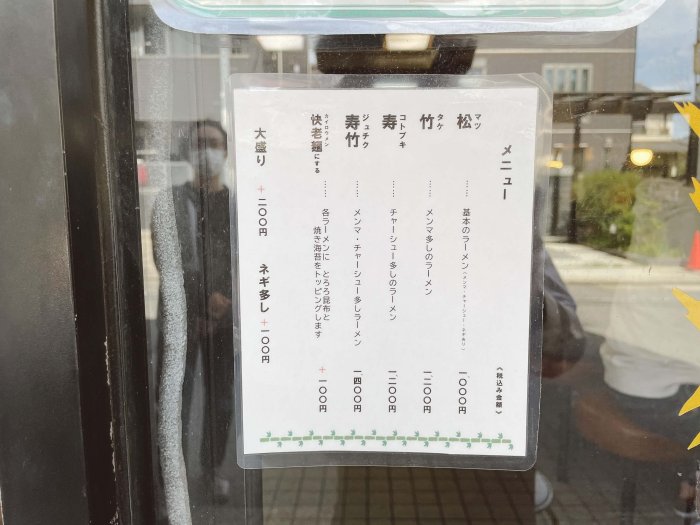 メニュー
(税込み金額)
松 マツ …… 基本のラーメン(メンマ・チャーシュー・ネギあり) 一〇〇〇円
竹 タケ …… メンマ多しのラーメン 一二〇〇円
寿 コトブキ …… チャーシュー多しのラーメン 一二〇〇円
寿竹 ジュチク …… メンマ・チャーシュー多しラーメン 一四〇〇円
快老麺にする カイロウメン …… 各ラーメンに とろろ昆布と
焼き海苔をトッピングします +一〇〇円
大盛り +二〇〇円 ネギ多し +一〇〇円